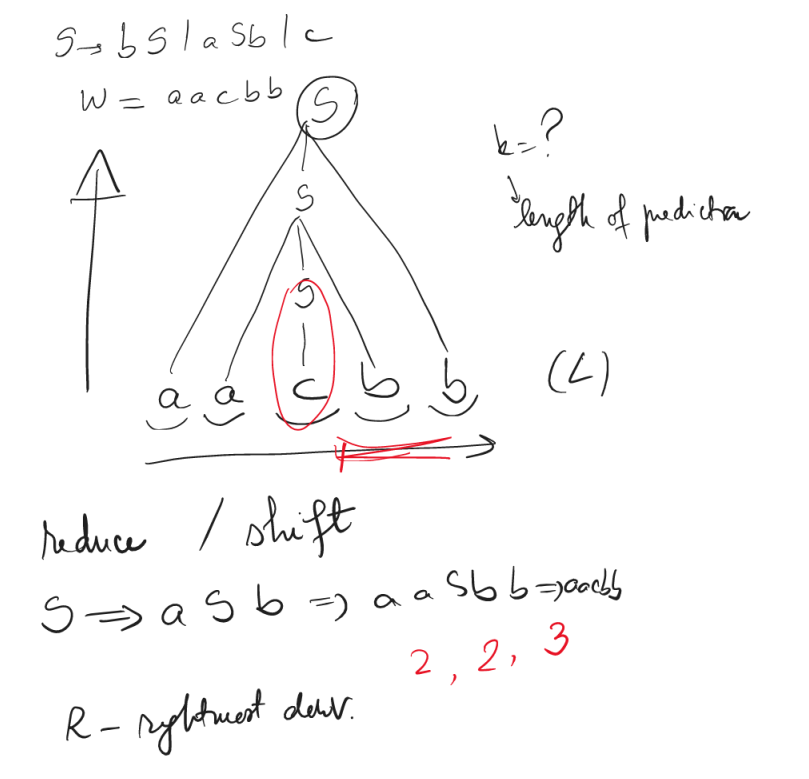 S → bS | aSb | c
w = aacbb
S
k = ?
S
↓ length of prediction
S
(L)
a a c b b
reduce / shift
S ⇒ a S b ⇒ a a S b b ⇒ aacbb
2, 2, 3
R - rightmost deriv.